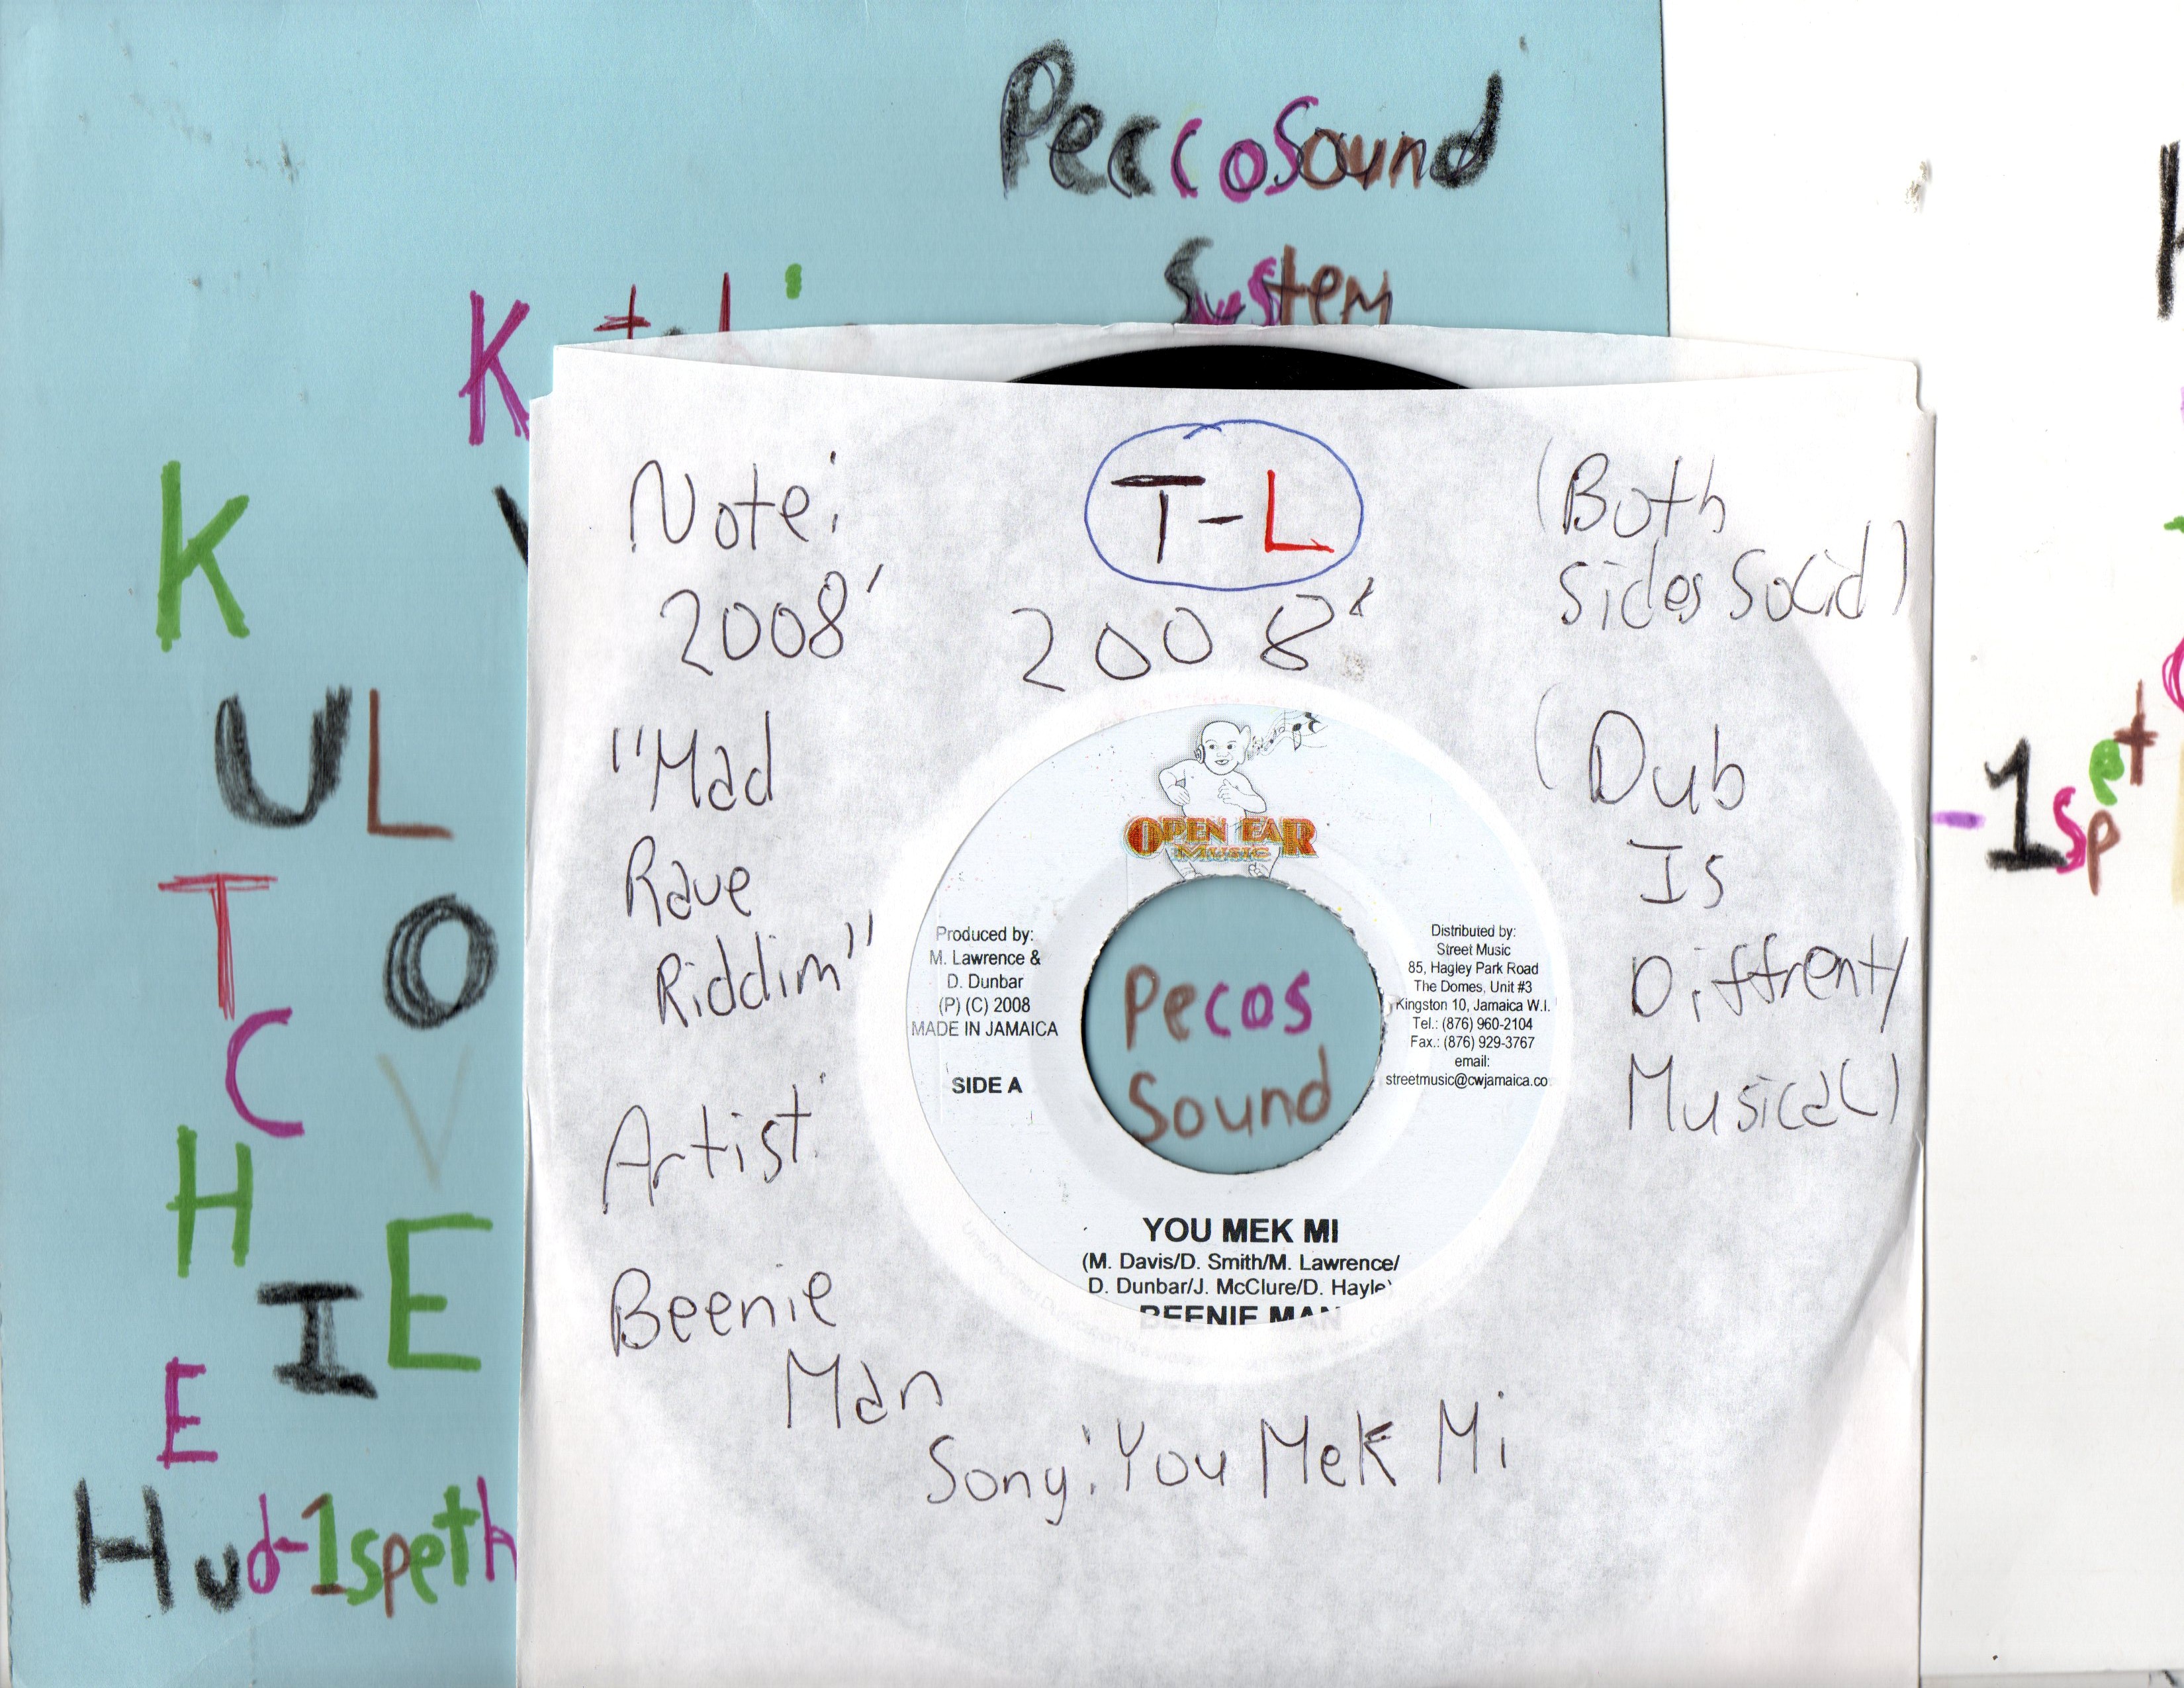 PeccoSound
System
K
K
U L
T O
C V
H E
I
E
Hud-1speth
-1spet
Note:
2008'
"Mad
Rave
Riddim"
Artist:
Beenie
Man
Song: You Mek Mi
T-L
2008'
(Both
sides Solid)
(Dub
Is
Diffrenty
Musical)
OPEN EAR
MUSIC
Produced by:
M. Lawrence &
D. Dunbar
(P) (C) 2008
MADE IN JAMAICA
SIDE A
Pecos
Sound
Distributed by:
Street Music
85, Hagley Park Road
The Domes, Unit #3
Kingston 10, Jamaica W.I.
Tel.: (876) 960-2104
Fax.: (876) 929-3767
email:
streetmusic@cwjamaica.co
YOU MEK MI
(M. Davis/D. Smith/M. Lawrence/
D. Dunbar/J. McClure/D. Hayle)
BEENIE MAN